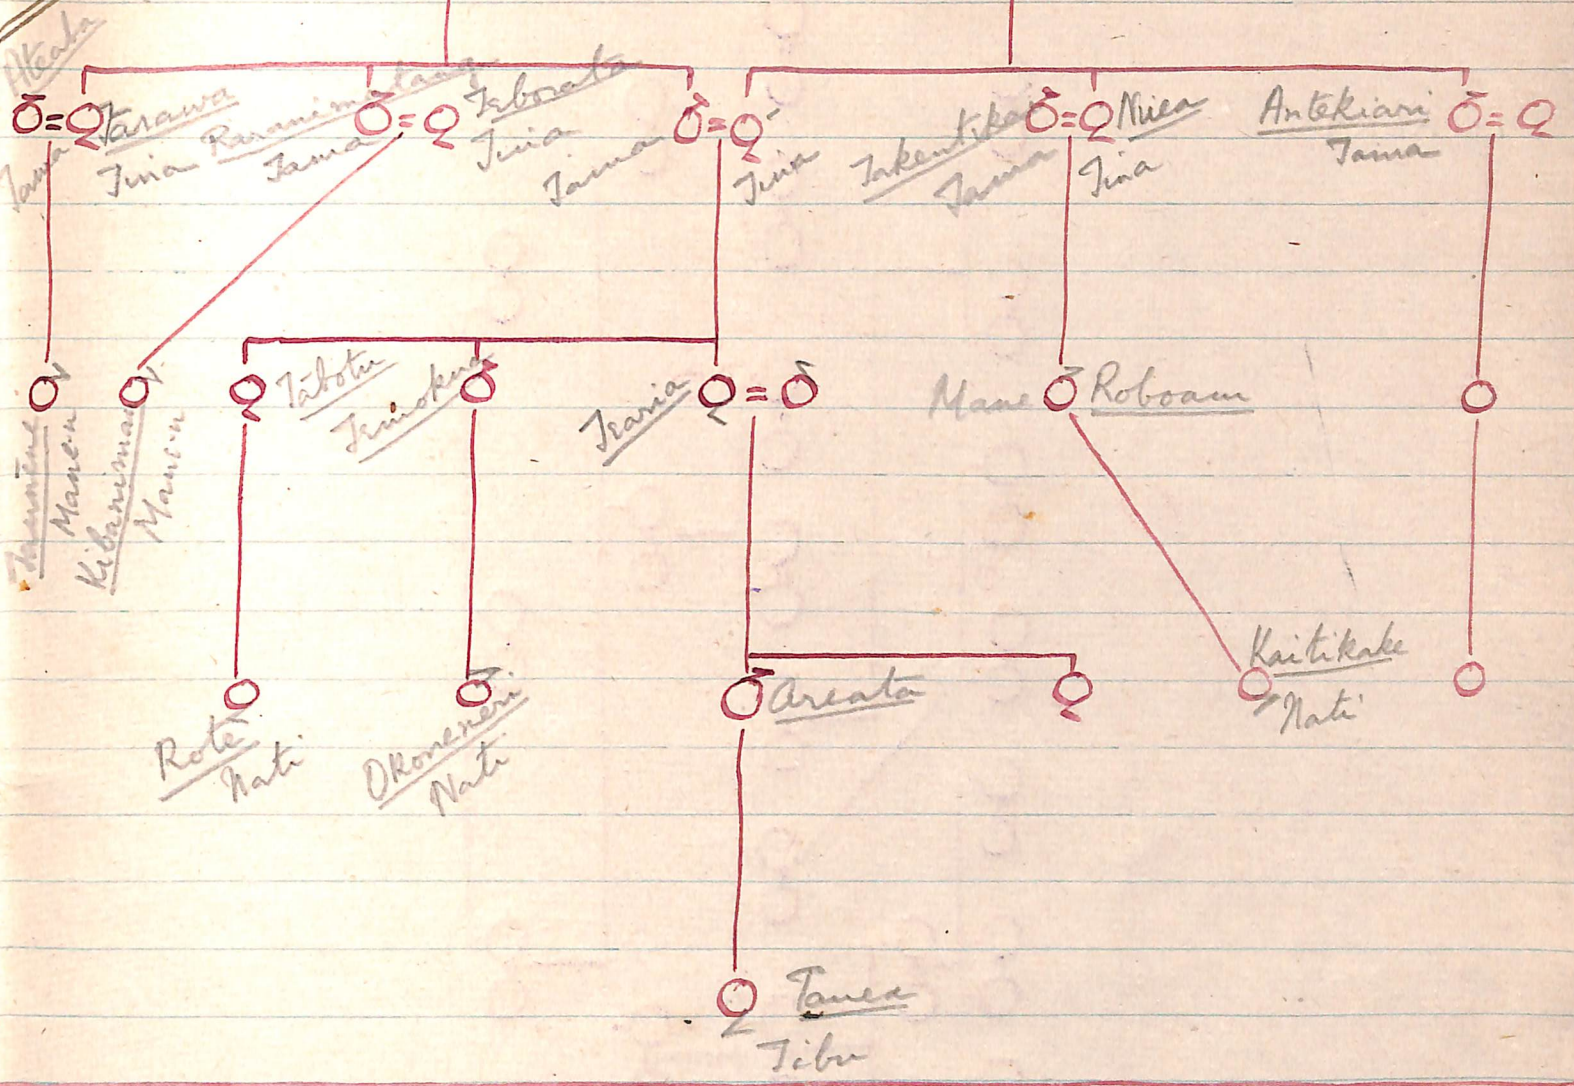 Ateata
Tama
Tarawa
Tina
Raranimatang
Tama
Teborata
Tina
Tama
Tina
Takentikai
Tama
Nuea
Tina
Antekiari
Tama
Manen
Kibanimai
Manen
Tabotu
Teinokua
Tearia
Mane
Roboam
Rote
Nati
Okoneneri
Nati
Areata
Kaitikake
Nati
Tanea
Tibu